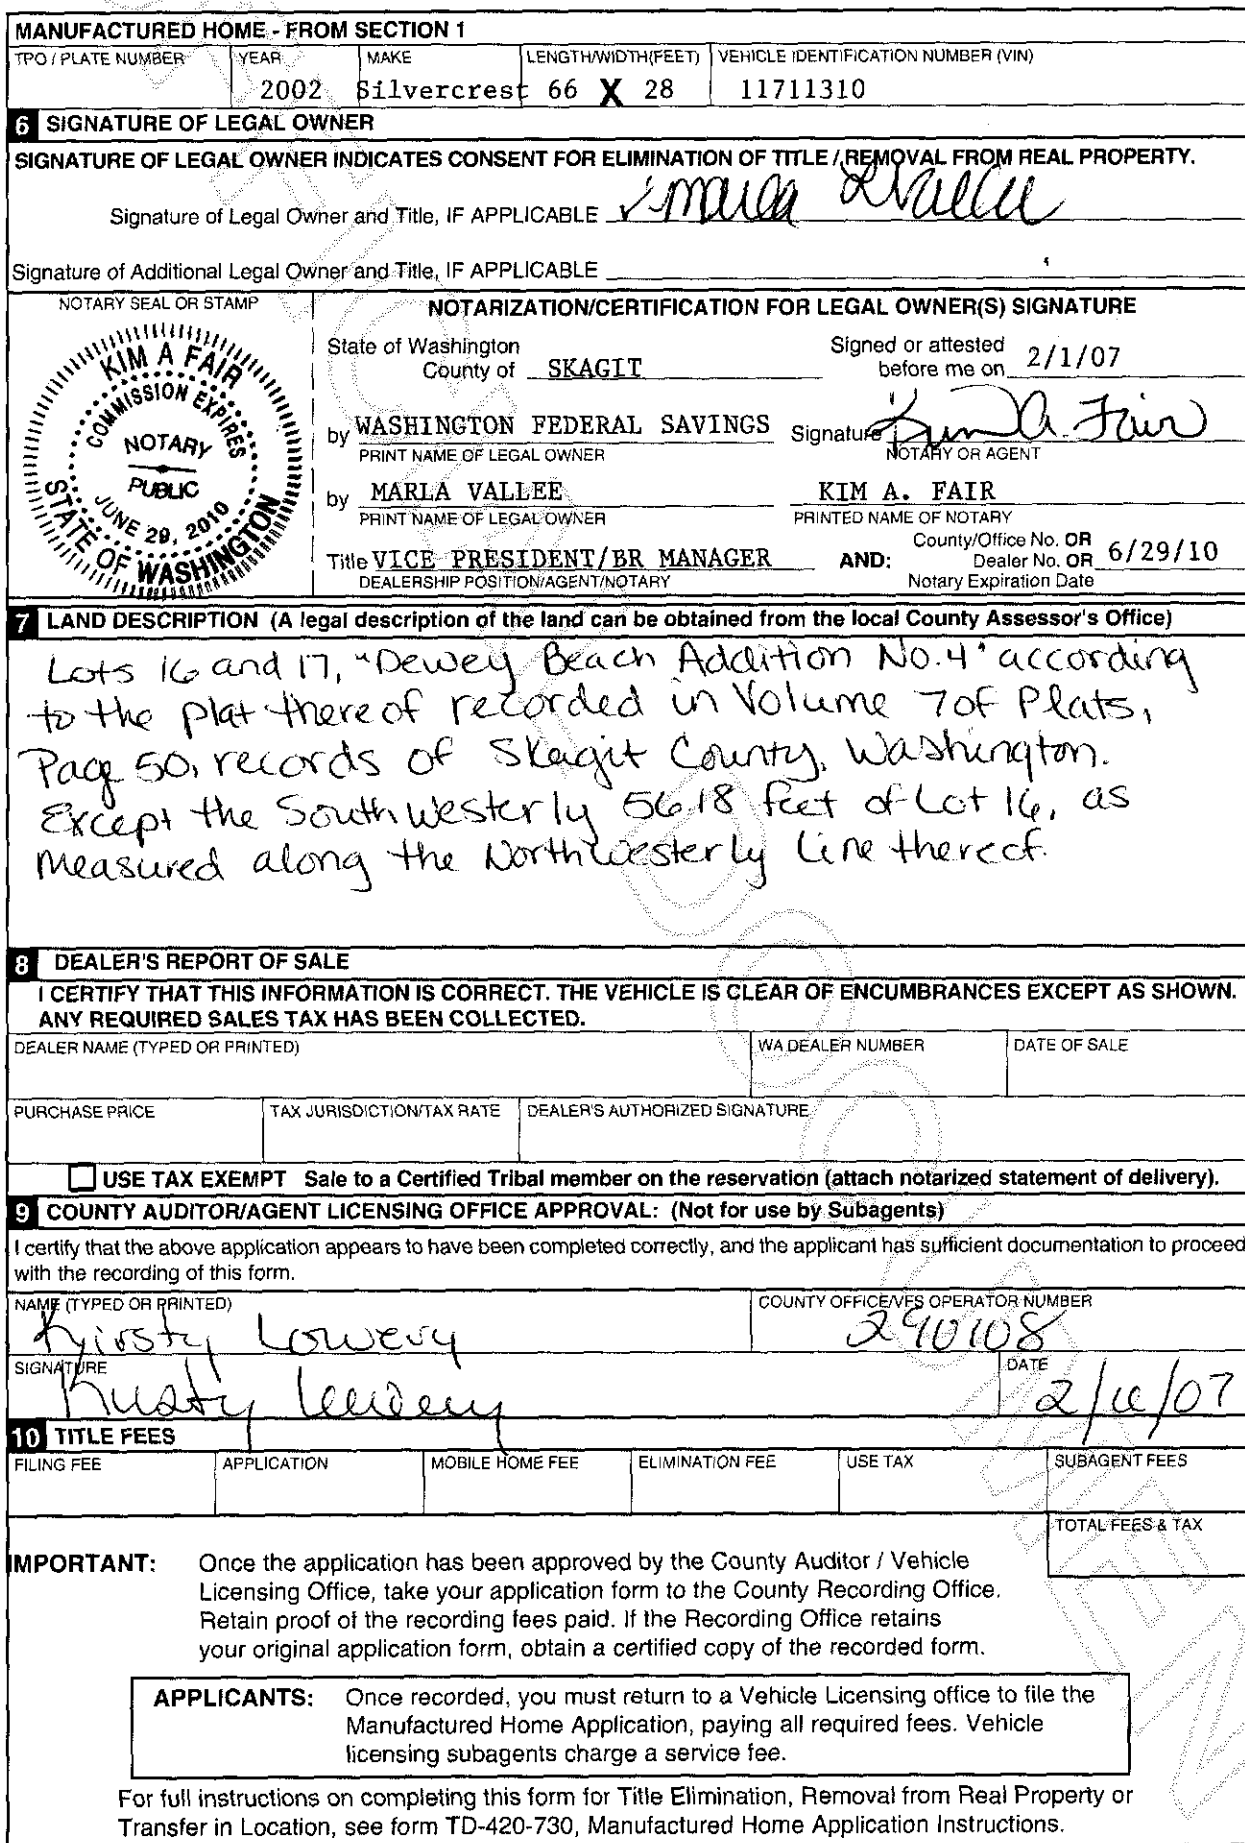 MANUFACTURED HOME - FROM SECTION 1
TPO / PLATE NUMBER YEAR MAKE LENGTH/WIDTH(FEET) VEHICLE IDENTIFICATION NUMBER (VIN)
2002 Silvercrest 66 X 28 11711310
6 SIGNATURE OF LEGAL OWNER
SIGNATURE OF LEGAL OWNER INDICATES CONSENT FOR ELIMINATION OF TITLE / REMOVAL FROM REAL PROPERTY.
Signature of Legal Owner and Title, IF APPLICABLE Marla Vallee
Signature of Additional Legal Owner and Title, IF APPLICABLE
NOTARY SEAL OR STAMP
KIM A FAIR
COMMISSION EXPIRES
NOTARY
PUBLIC
JUNE 29, 2010
STATE OF WASHINGTON
NOTARIZATION/CERTIFICATION FOR LEGAL OWNER(S) SIGNATURE
State of Washington Signed or attested
County of SKAGIT before me on 2/1/07
by WASHINGTON FEDERAL SAVINGS Signature Kim A. Fair
PRINT NAME OF LEGAL OWNER NOTARY OR AGENT
by MARLA VALLEE KIM A. FAIR
PRINT NAME OF LEGAL OWNER PRINTED NAME OF NOTARY
County/Office No. OR
Title VICE PRESIDENT/BR MANAGER AND: Dealer No. OR 6/29/10
DEALERSHIP POSITION/AGENT/NOTARY Notary Expiration Date
7 LAND DESCRIPTION (A legal description of the land can be obtained from the local County Assessor's Office)
Lots 16 and 17, "Dewey Beach Addition No. 4" according
to the plat thereof recorded in Volume 7 of Plats,
Page 50, records of Skagit County, Washington.
Except the Southwesterly 56.18 feet of Lot 16, as
measured along the Northwesterly line thereof.
8 DEALER'S REPORT OF SALE
I CERTIFY THAT THIS INFORMATION IS CORRECT. THE VEHICLE IS CLEAR OF ENCUMBRANCES EXCEPT AS SHOWN.
ANY REQUIRED SALES TAX HAS BEEN COLLECTED.
DEALER NAME (TYPED OR PRINTED) WA DEALER NUMBER DATE OF SALE
PURCHASE PRICE TAX JURISDICTION/TAX RATE DEALER'S AUTHORIZED SIGNATURE
USE TAX EXEMPT Sale to a Certified Tribal member on the reservation (attach notarized statement of delivery).
9 COUNTY AUDITOR/AGENT LICENSING OFFICE APPROVAL: (Not for use by Subagents)
I certify that the above application appears to have been completed correctly, and the applicant has sufficient documentation to proceed
with the recording of this form.
NAME (TYPED OR PRINTED) COUNTY OFFICE/VFS OPERATOR NUMBER
Kirsty Lowery 290108
SIGNATURE DATE
Kirsty Lowery
10 TITLE FEES
FILING FEE APPLICATION MOBILE HOME FEE ELIMINATION FEE USE TAX SUBAGENT FEES
TOTAL FEES & TAX
IMPORTANT: Once the application has been approved by the County Auditor / Vehicle
Licensing Office, take your application form to the County Recording Office.
Retain proof of the recording fees paid. If the Recording Office retains
your original application form, obtain a certified copy of the recorded form.
APPLICANTS: Once recorded, you must return to a Vehicle Licensing office to file the
Manufactured Home Application, paying all required fees. Vehicle
licensing subagents charge a service fee.
For full instructions on completing this form for Title Elimination, Removal from Real Property or
Transfer in Location, see form TD-420-730, Manufactured Home Application Instructions.